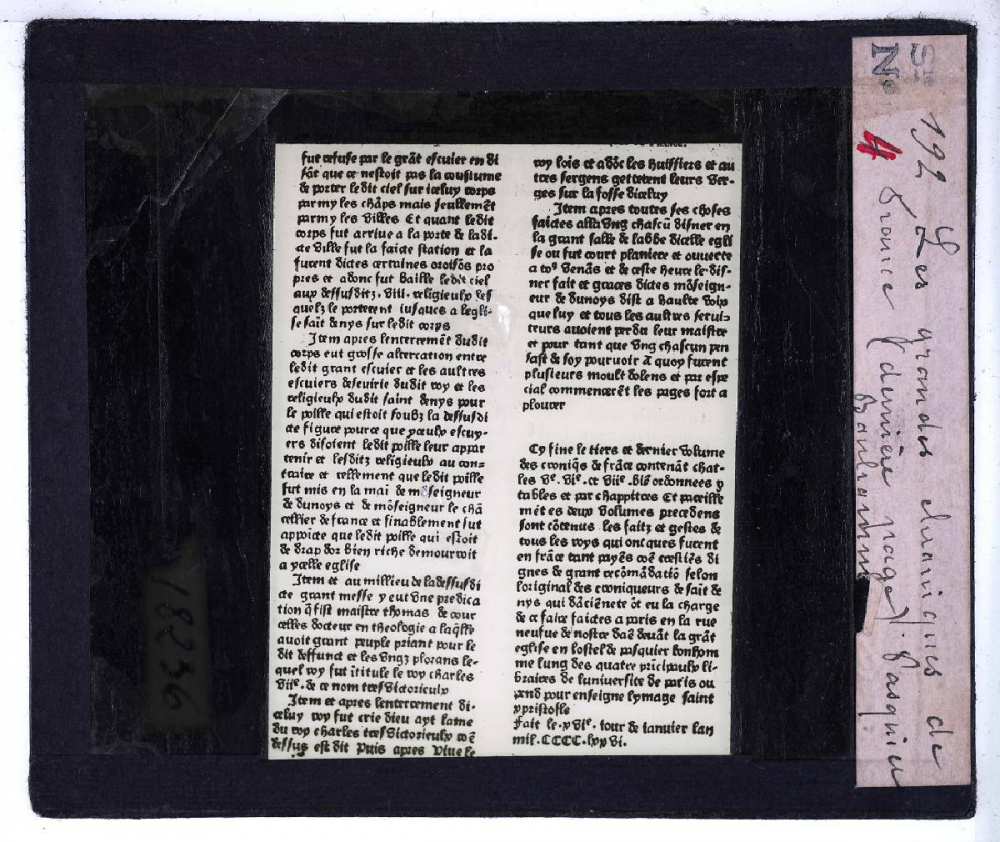 fut refuse par le grāt escuier en di
sāt que ce nestoit pas la coustume
de porter ledit ciel sur iceluy corps
parmy les chāps mais seullemēt
parmy les villes Et quant ledit
corps fut arriue a la porte de ladi-
cte ville fut la faicte station et la
furent dictes certaines oroisōs pro
pres et adonc fut baille ledit ciel
aux dessusditz. viii. religieulx les
quelz le porterent iusques a legli-
se sait denys sur ledit corps
Item apres lenterrement dudit
corps eut grosse altercation entre
ledit grant escuier et les aultres
escuiers descuirie dudit roy et les
religieulx dudit saint denys pour
le poille qui estoit soubz la dessusdi
cte figure pource que yceulx escuy-
ers disoient ledit poille leur appar
tenir et lesditz religieulx au con-
traire et tellement que ledit poille
fut mis en la mai de mōseigneur
de dunoys et de mōseigneur le chā
cellier de france et finablement fut
appoicte que ledit poille qui estoit
de drap dor bien riche demourroit
a ycelle eglise
Item et au millieu de la dessusdi
cte grant messe y eut vne predica
tion q̄ fist maistre thomas de cour
celles docteur en theologie a laq̄lle
auoit grant peuple priant pour le
dit deffunct et les vngz plorans le-
quel roy fut ītitule le roy charles
viiᵉ. de ce nom tres victorieulx
Item et apres lenterrement di-
celuy roy fut crie dieu ayt lame
du roy charles tres victorieulx cōe
dessus est dit Puis apres viue le
roy lois et adōc les huissiers et au
tres sergens getterent leurs ver-
ges sur la fosse diceluy
Item apres toutes ses choses
faictes alla vng chascū disner en
la grant salle de labbe dicelle egli
se ou fut court planiere et ouuerte
a toꝰ venās et de ceste heure le dis-
ner fait et graces dictes mōseign-
eur de dunoys dist a haulte voix
que luy et tous les aultres serui-
teurs auoient perdu leur maistre
et pour tant que vng chascun pen
sast de soy pouruoir A quoy furent
plusieurs moult dolens et par espe
cial commencerēt les pages fort a
plourer
Cy fine le tiers et dernier volume
des croniq̄s de frāce contenāt char-
les vᵉ. viᵉ. et viiᵉ. biē ordonnees p
tables et par chappitres Et pareille
mēt es deux volumes precedens
sont cōtenus les faitz et gestes de
tous les roys qui oncques furent
en frāce tant payēs cōē crestiēs di
gnes de grant recōmādatiō selon
loriginal des croniqueurs de sait de
nys qui dāciēnete ōt eu la charge
de ce faire faictes a paris en la rue
neufue de nostre daē deuāt la grāt
eglise en lostel de pasquier bonhom
me lung des quatre prīcipaulx li-
braires de luniuersite de paris ou
pend pour enseigne lymage saint
xpristofle
Fait le. xviᵉ. iour de ianuier lan
mil. CCCC. lxxvi.
V82236
Sie
No 4
192 Les grandes chroniques de
France (dernière page). Pasquier
Bonhomme